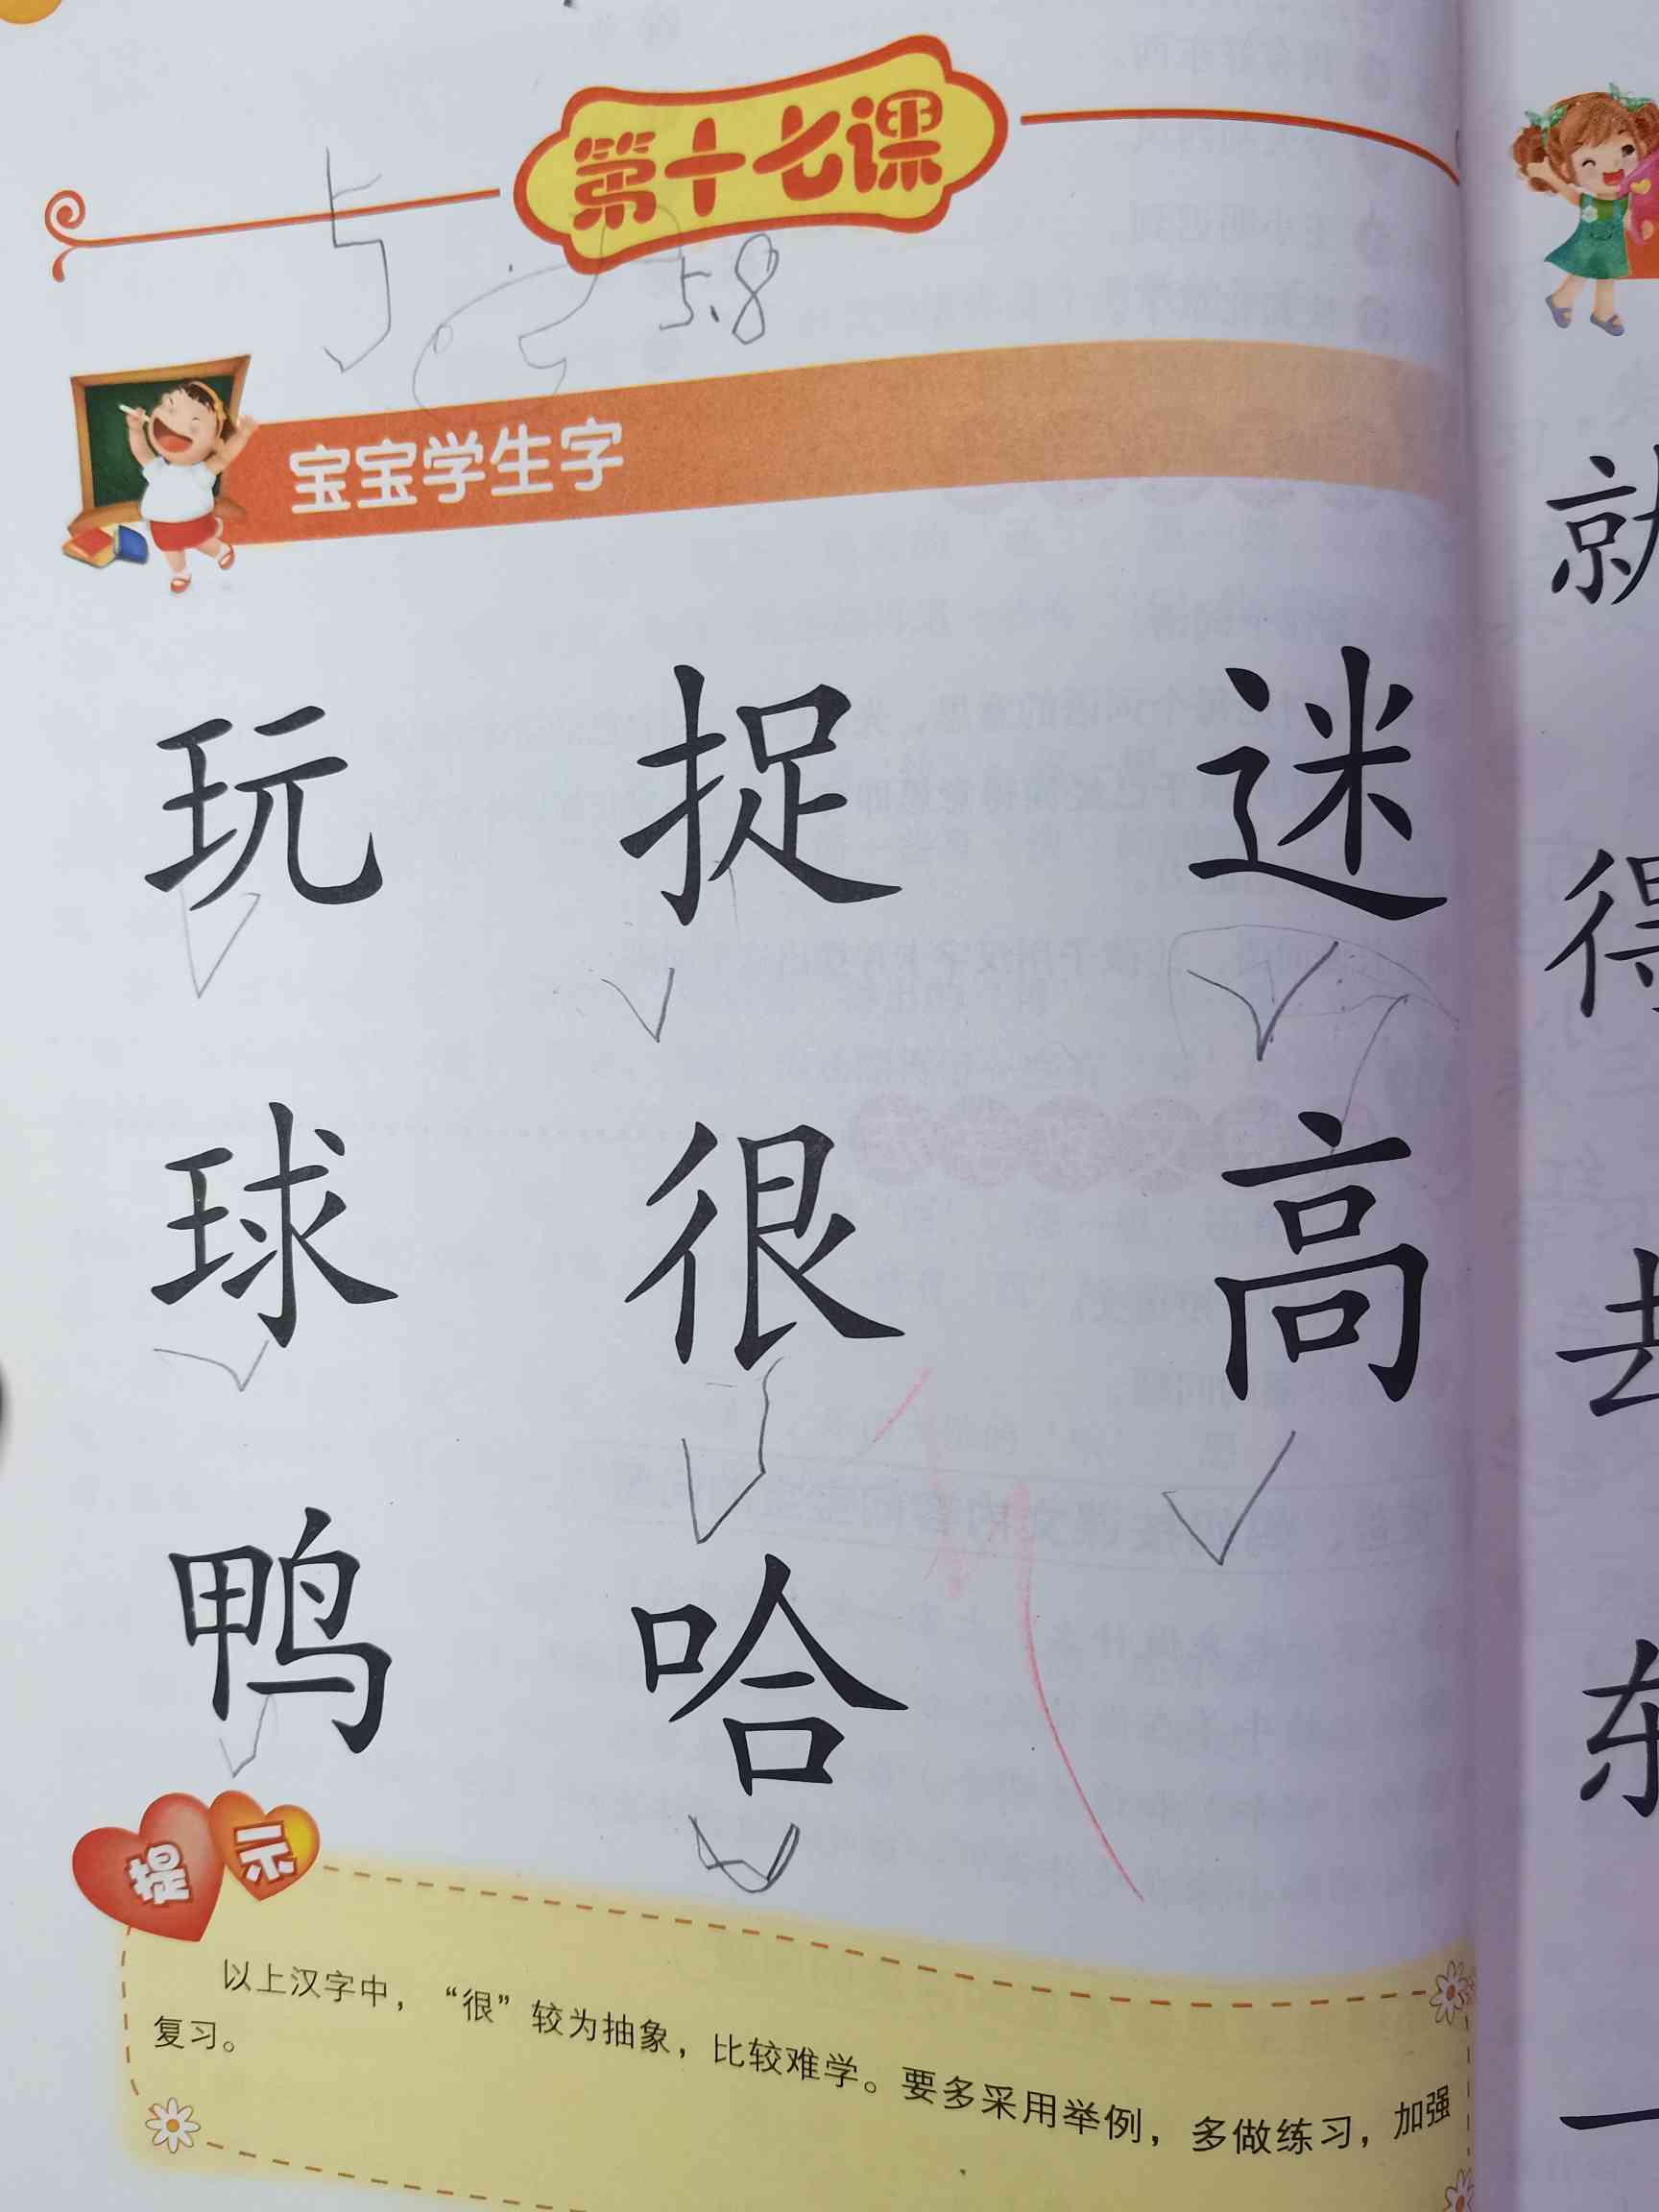 第十七课
5 5.8
宝宝学生字
玩 捉 迷
球 很 高
鸭 哈
提示
以上汉字中，“很”较为抽象，比较难学。要多采用举例，多做练习，加强
复习。
就
得
去
东
一